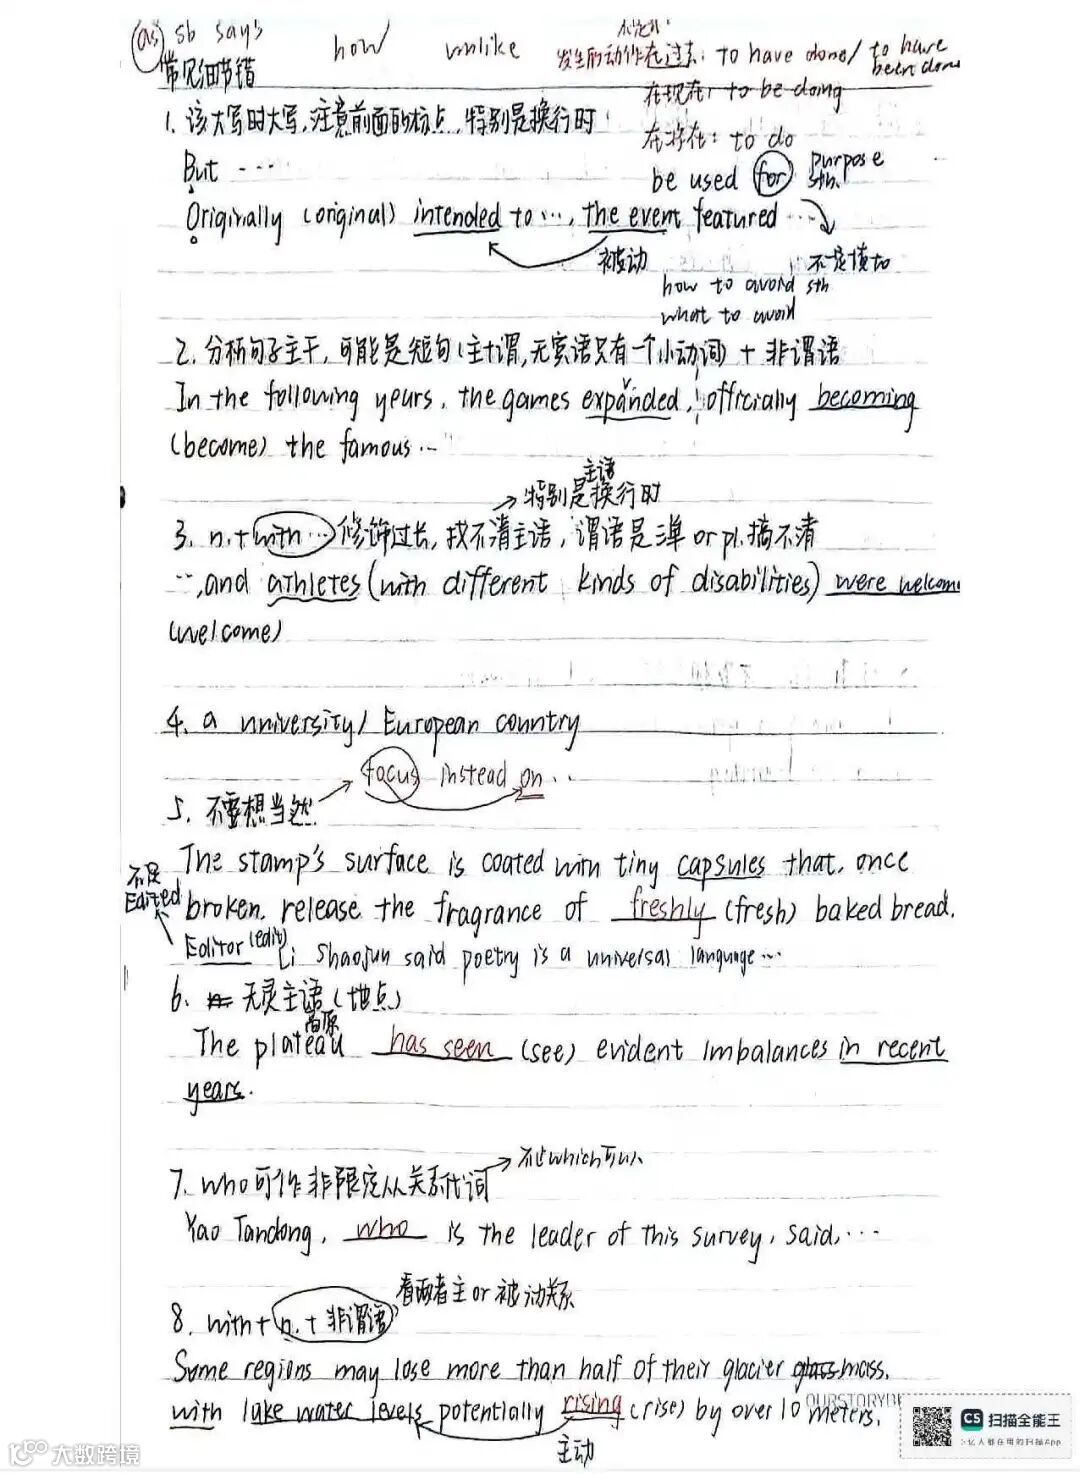 as sb says how unlike 不定式:
常见细节错 发生的动作在过去: to have done/ to have been done
在现在: to be doing
1. 该大写时大写,注意前面的标点,特别是换行时
在将在: to do
But ···· be used for purpose sth.
Originally (original) intended to ···, the event featured ···
被动 不一定填to
how to avoid sth
what to avoid
2. 分析句子主干,可能是短句(主+谓,无宾语只有一个小动词) + 非谓语
In the following years, the games expanded, officially becoming
v
(become) the famous ··
主语
特别是换行时
3. n.+with···修饰过长,找不清主语,谓语是三单 or pl.搞不清
···,and athletes (with different kinds of disabilities) were welcom
(welcome)
4. a university/ European country
focus instead on ···
5. 不要想当然
The stamp's surface is coated with tiny capsules that, once
不是
Edited broken, release the fragrance of freshly (fresh) baked bread.
Editor (edit) Li Shaojun said poetry is a universal language···
6. 无灵主语(地点)
高原
The plateau has seen (see) evident imbalances in recent
years.
不止which可以
7. who可作非限定从关系代词
Yao Tandong, who is the leader of this survey, said, ···
看两者主or被动关系
8. with+ n. + 非谓语
Some regions may lose more than half of their glacier glass mass,
OURSTORYBE
with lake water levels potentially rising (rise) by over 10 meters.
主动
CS 扫描全能王
3亿人都在用的扫描App
大数跨境